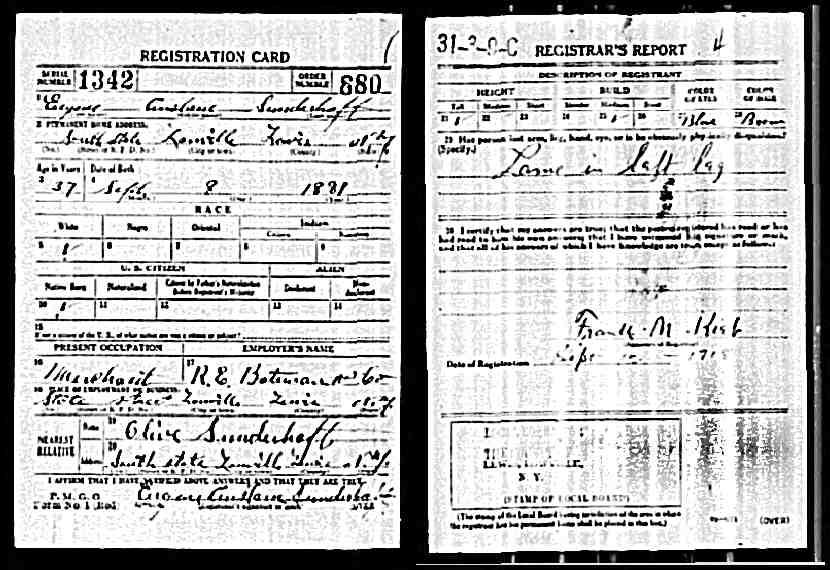 REGISTRATION CARD
SERIAL NUMBER 1342 ORDER NUMBER 880
1 Eugene Sunderhoft
2 PERMANENT HOME ADDRESS:
South State Lowville Lewis N.Y.
Age in Years Date of Birth
3 37 4 Sept. 8 1881
RACE
White Negro Oriental Indian
Citizen
5 6 7 8 9
U. S. CITIZEN ALIEN
Native Born Naturalized Citizen by Father's Naturalization Before Registrant's Majority Declarant Non-declarant
10 11 12 13 14
15
If not a citizen of the U. S., of what nation are you a citizen or subject?
PRESENT OCCUPATION EMPLOYER'S NAME
16 Merchant 17 R. E. Bateman and Co
18 PLACE OF EMPLOYMENT OR BUSINESS:
State Lowville Lewis N.Y.
NEAREST RELATIVE
Name 19 Olive Sunderhoft
Address 20 South State Lowville Lewis N.Y.
I AFFIRM THAT I HAVE VERIFIED ABOVE ANSWERS AND THAT THEY ARE TRUE
P. M. G. O.
Form No. 1 (Red)
REGISTRAR'S REPORT
DESCRIPTION OF REGISTRANT
HEIGHT BUILD COLOR OF EYES COLOR OF HAIR
Tall Medium Short Slender Medium Stout
21 22 23 24 25 26 27 Blue 28 Brown
29 Has person lost arm, leg, hand, eye, or is he obviously physically disqualified?
(Specify.)
Lame in left leg
30 I certify that my answers are true; that the person registered has read or has
had read to him his own answers; that I have witnessed his signature or mark,
and that all of his answers of which I have knowledge are true, except as follows:
Frank M.
Date of Registration Sept
N. Y.
(STAMP OF LOCAL BOARD)
(The stamp of the Local Board having jurisdiction of the area in which
the registrant has his permanent home shall be placed in this box.)
(OVER)